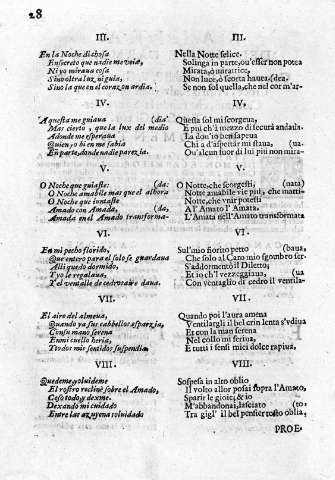 28
III.
En la Noche dichosa
En secreto que nadie me veia,
Ni yo miraua cosa
Sin otra luz, ni guia,
Sino la que en el corazon ardia.
IV.
Aquesta me guiaua (dia:
Mas cierto, que la luz del medio
Adonde me esperaua
Quien yo bien me sabia
En parte, donde nadie parezia.
V.
O Noche que guiaste: (da:
O Noche amabile mas que el albora
O Noche que iuntaste
Amado con Amada, (da,
Amada en el Amado transforma-
VI.
En mi pecho florido,
Que entero para el solo se guardaua
Alli quedò dormido,
Y yo le regalaua,
Y el ventalle de cedros aire daua.
VII.
El aire del almeua,
Quando ya sus cabbellos asparzia,
Con su mano serena
En mi cuello heria,
Y todos mis sentidos suspendia.
VIII.
Quedeme, y oluideme
El rostro recliné sobre el Amado,
Ceso todo y dexme.
Dexando mi cuidado
Entre las azuçenas oluidado
III.
Nella Notte felice.
Solinga in parte, ou'esser non potea
Mirata, ò miratrice,
Non luce, ò scorta hauea, sdea.
Se non sol quella, che nel cor m'ar-
IV.
Questa sol mi scorgeua,
E più ch'à mezzo dì secura andaua.
La dou'io ben sapeua
Chi a d'aspettar mi staua, (ua
Ou'alcun fuor di lui più non mira-
V.
O Notte, che scorgesti, (nata)
Notte amabile vie più, che matti-
Notte, che vnir potesti
Al'Amato l'Amata.
L'Amata nell'Amato transformata
VI.
Sul'mio fiorito petto (baua,
Che solo al Caro mio sgombro ser-
S'addormentò il Diletto;
Et io ch'l vezzeggiaua, (ua
Con ventaglio di cedro il ventila-
VII.
Quando poi l'aura amena
Ventilargli il bel crin lenta s'vdiua
Et con la man serena
Nel collo mi feriua,
E tutti i sensi miei dolce rapiua.
VIII.
Sospesa in alto oblio
Il volto allor posai sopra l'Amato,
Sparir le gioie; & io
M'abbandonai, lasciato (to,
Tra gigl' il bel pensier tosto oblia,
PROE-